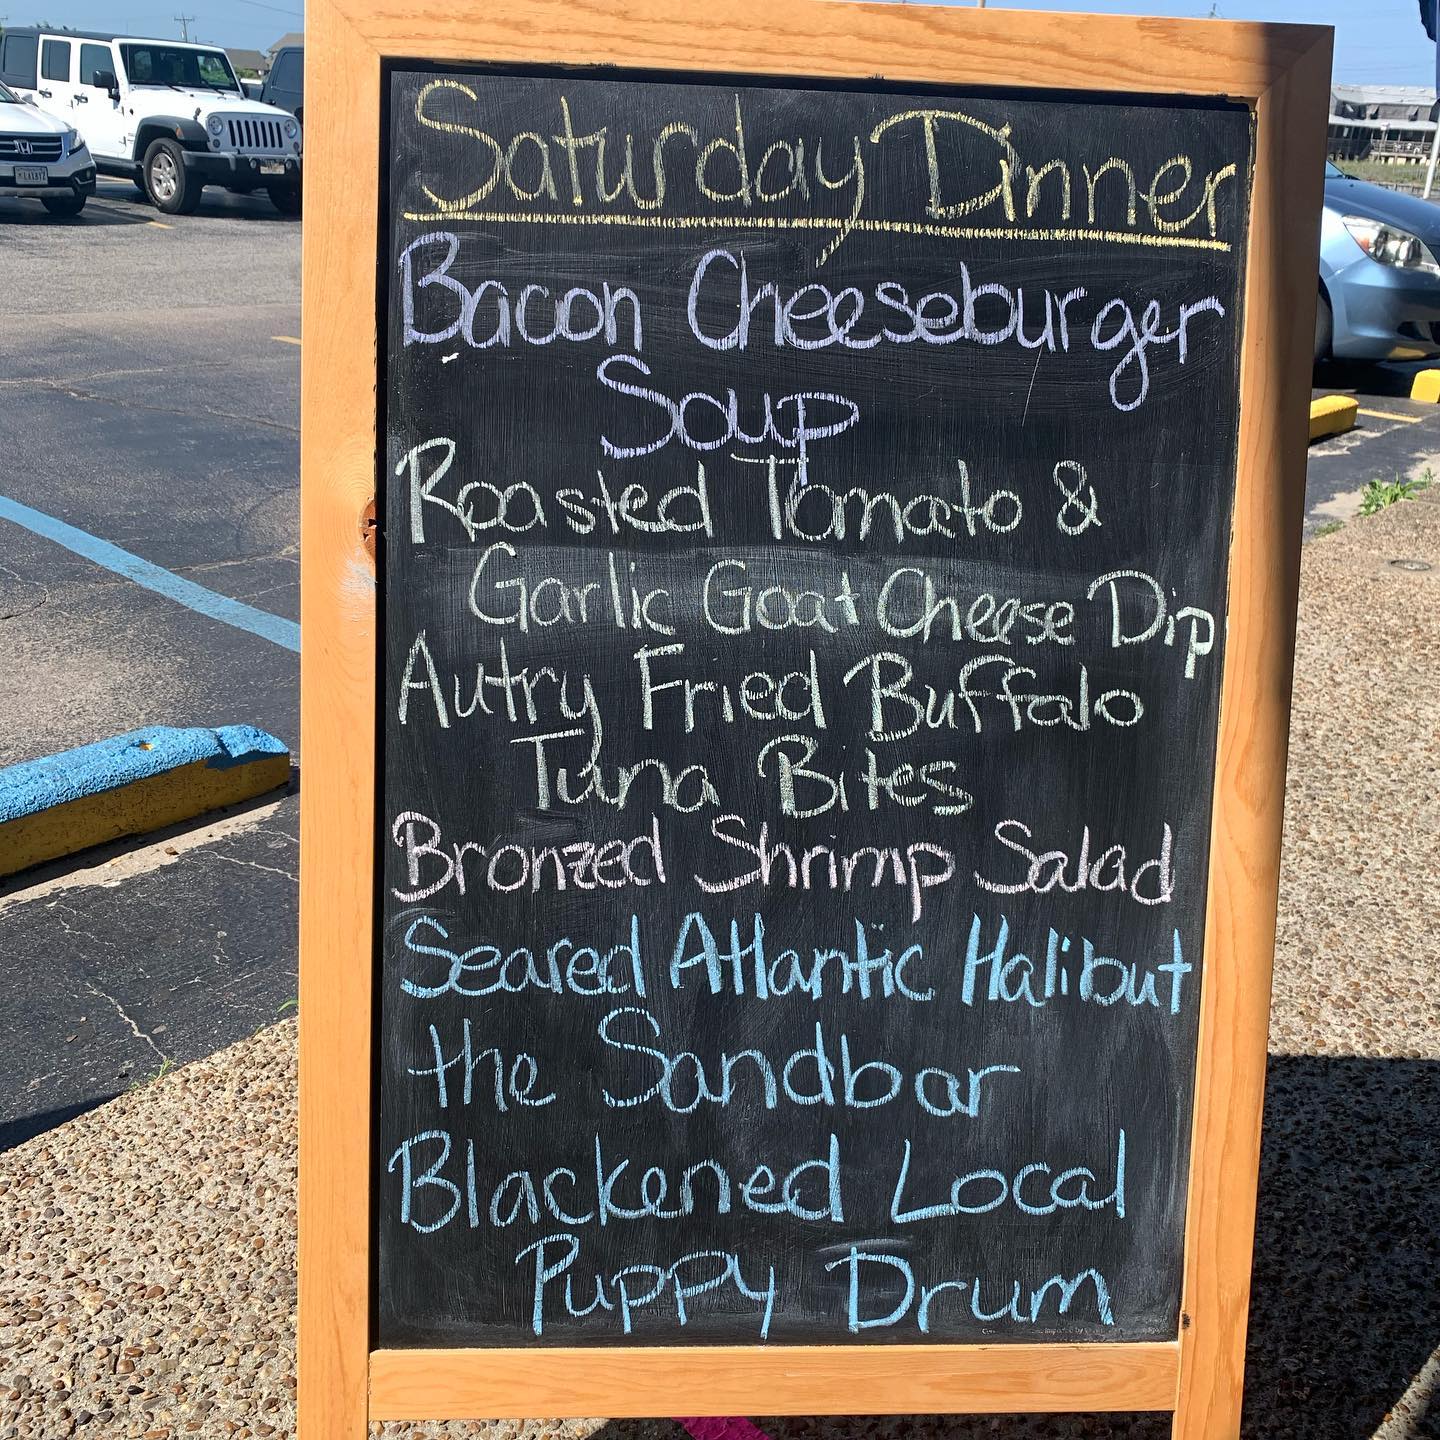 Saturday Dinner
Bacon Cheeseburger
Soup
Roasted Tomato &
Garlic Goat Cheese Dip
Autry Fried Buffalo
Tuna Bites
Bronzed Shrimp Salad
Seared Atlantic Halibut
the Sandbar
Blackened Local
Puppy Drum